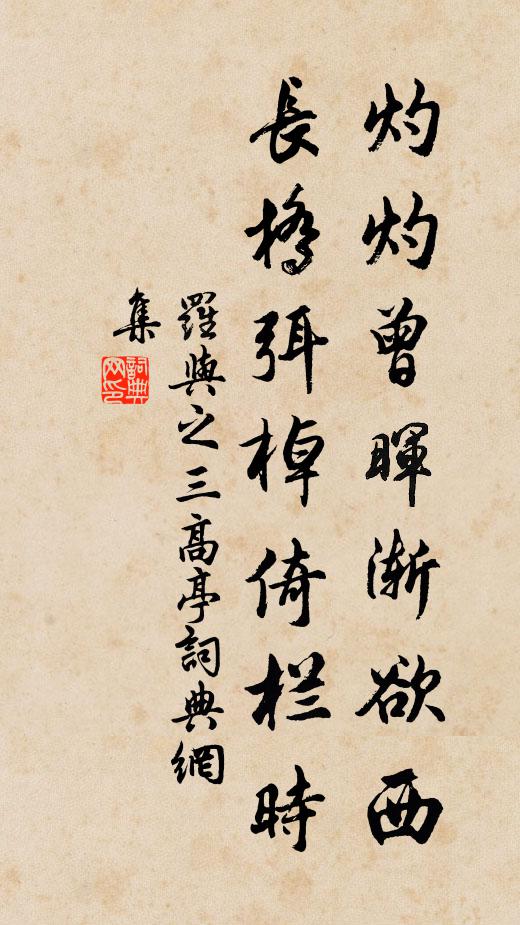 灼灼曾暉漸欲西
長橋弭棹倚栏時
羅與之三高亭詞典網
集
詞典网印